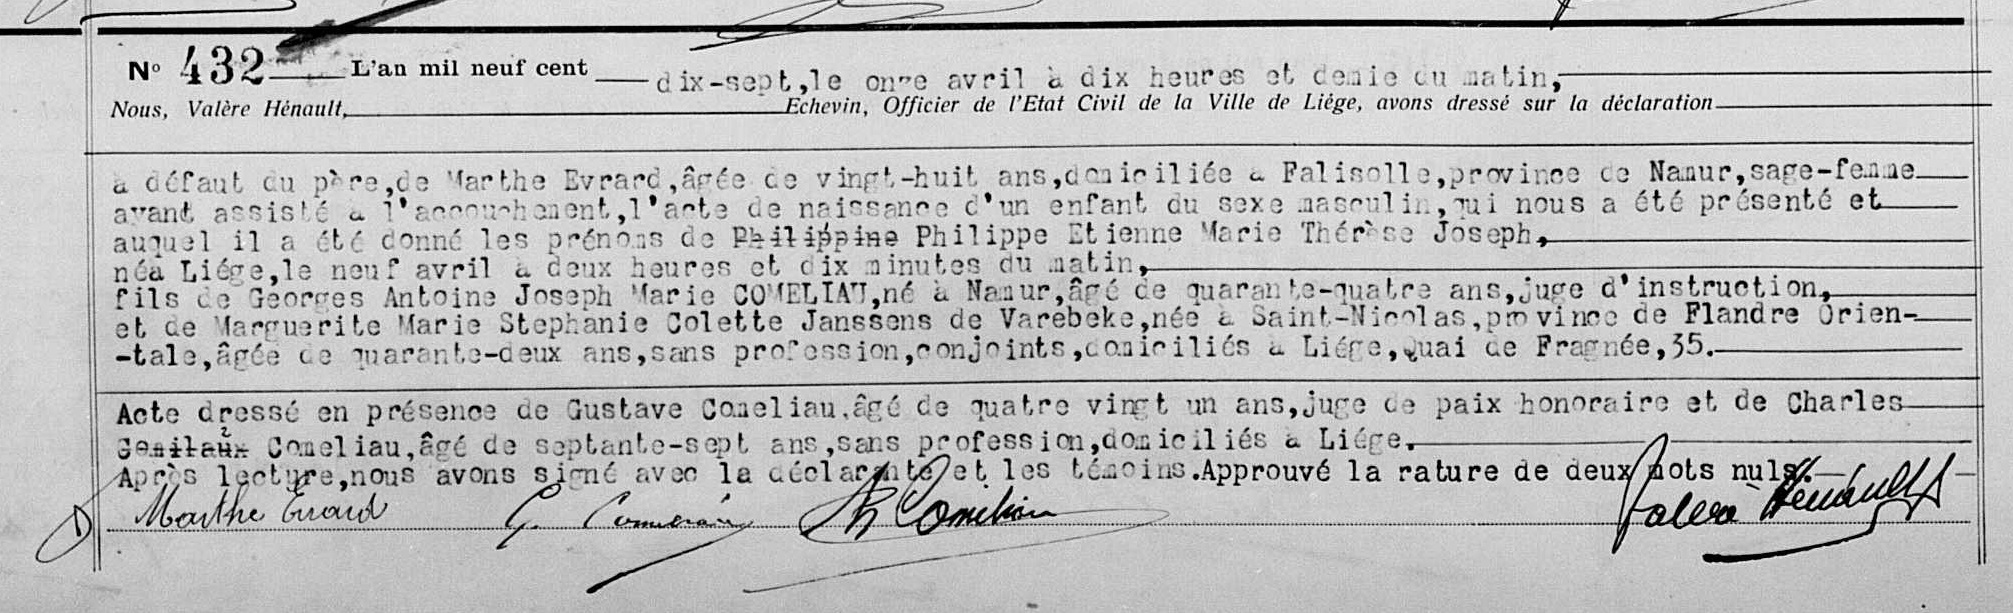 Nº 432 L'an mil neuf cent dix-sept,le onze avril à dix heures et demie du matin,
Nous, Valère Hénault, Echevin, Officier de l'Etat Civil de la Ville de Liége, avons dressé sur la déclaration
à défaut du père,de Marthe Evrard,âgée de vingt-huit ans,domiciliée à Falisolle,province de Namur,sage-femme
ayant assisté à l'accouchement,l'acte de naissance d'un enfant du sexe masculin,qui nous a été présenté et
auquel il a été donné les prénoms de Philippine Philippe Etienne Marie Thérèse Joseph,
néa Liége,le neuf avril à deux heures et dix minutes du matin,
fils de Georges Antoine Joseph Marie COMELIAU,né à Namur,âgé de quarante-quatre ans,juge d'instruction,
et de Marguerite Marie Stephanie Colette Janssens de Varebeke,née à Saint-Nicolas,province de Flandre Orien-
-tale,âgée de quarante-deux ans,sans profession,conjoints,domiciliés à Liége,quai de Fragnée,35.
Acte dressé en présence de Gustave Comeliau,âgé de quatre vingt un ans,juge de paix honoraire et de Charles
2 Comeliau,âgé de septante-sept ans,sans profession,domiciliés à Liége.
Après lecture,nous avons signé avec la déclarante et les témoins.Approuvé la rature de deux mots nuls.
Marthe Evrard G. Comeliau Ch Comeliau Valère Hénault